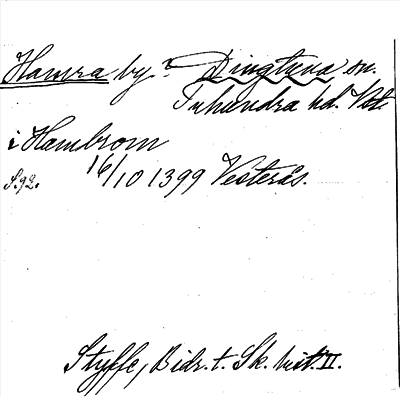 Hamra by? Dingtuna sn.
Tuhundra hd. Vstl.
i Hambrom
S. 92. 16/10 1399 Vesterås.
Styffe, Bidr. t. Sk. hist. II.